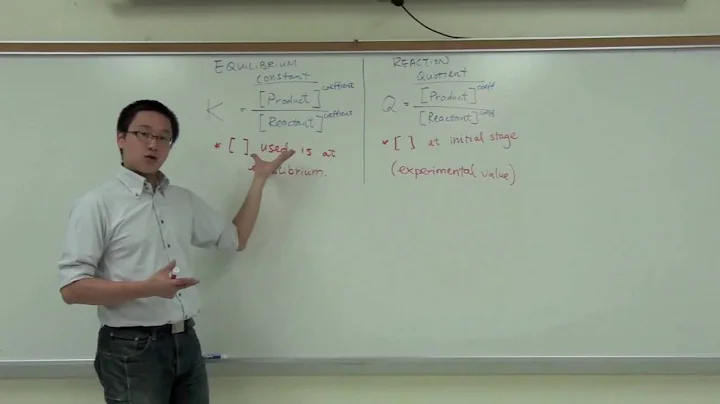 EQUILIBRIUM
constant
K = [Product]^coefficient / [Reactant]^coefficient
* [ ] used is at
equilibrium.
REACTION
Quotient
Q = [Product]^coeff / [Reactant]^coeff
* [ ] at initial stage
(experimental value)